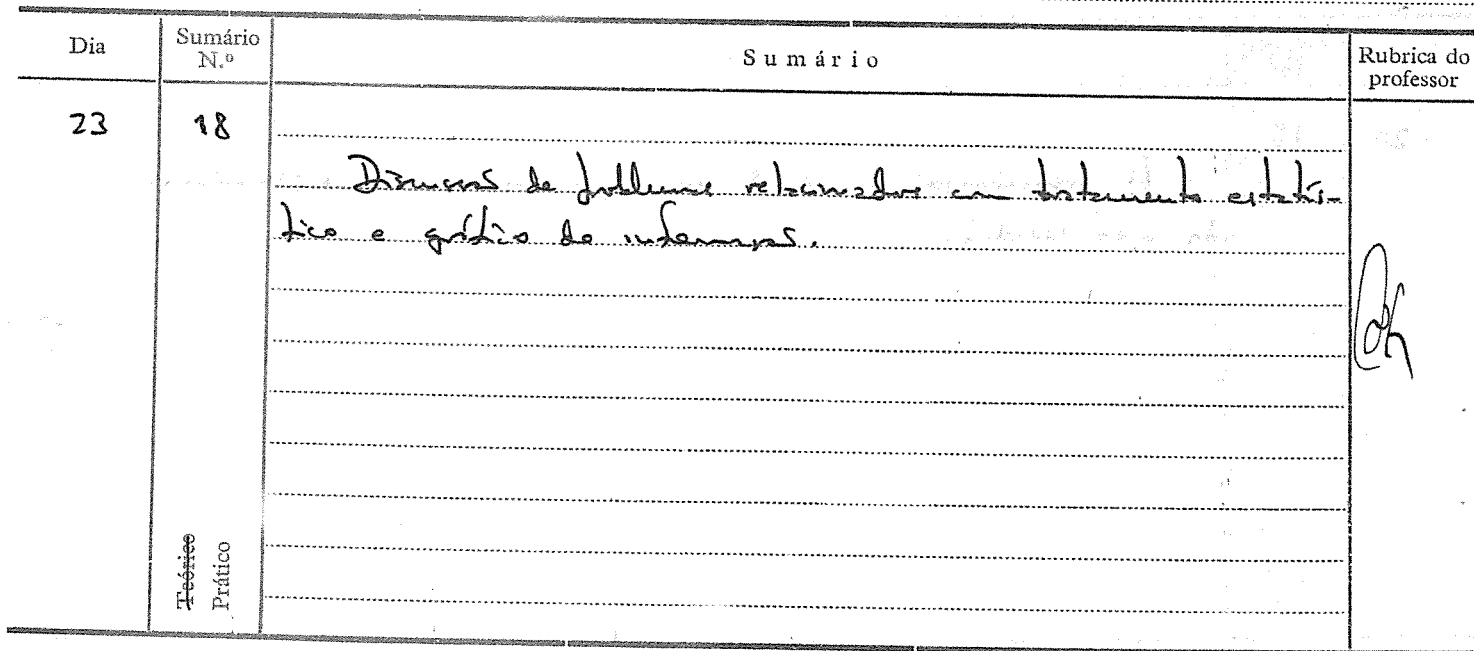 Dia
Sumário N.º
Sumário
Rubrica do professor
23
18
Discussão de problemas relacionados com tratamento estatís-
tico e gráfico de informação.
Teórico
Prático